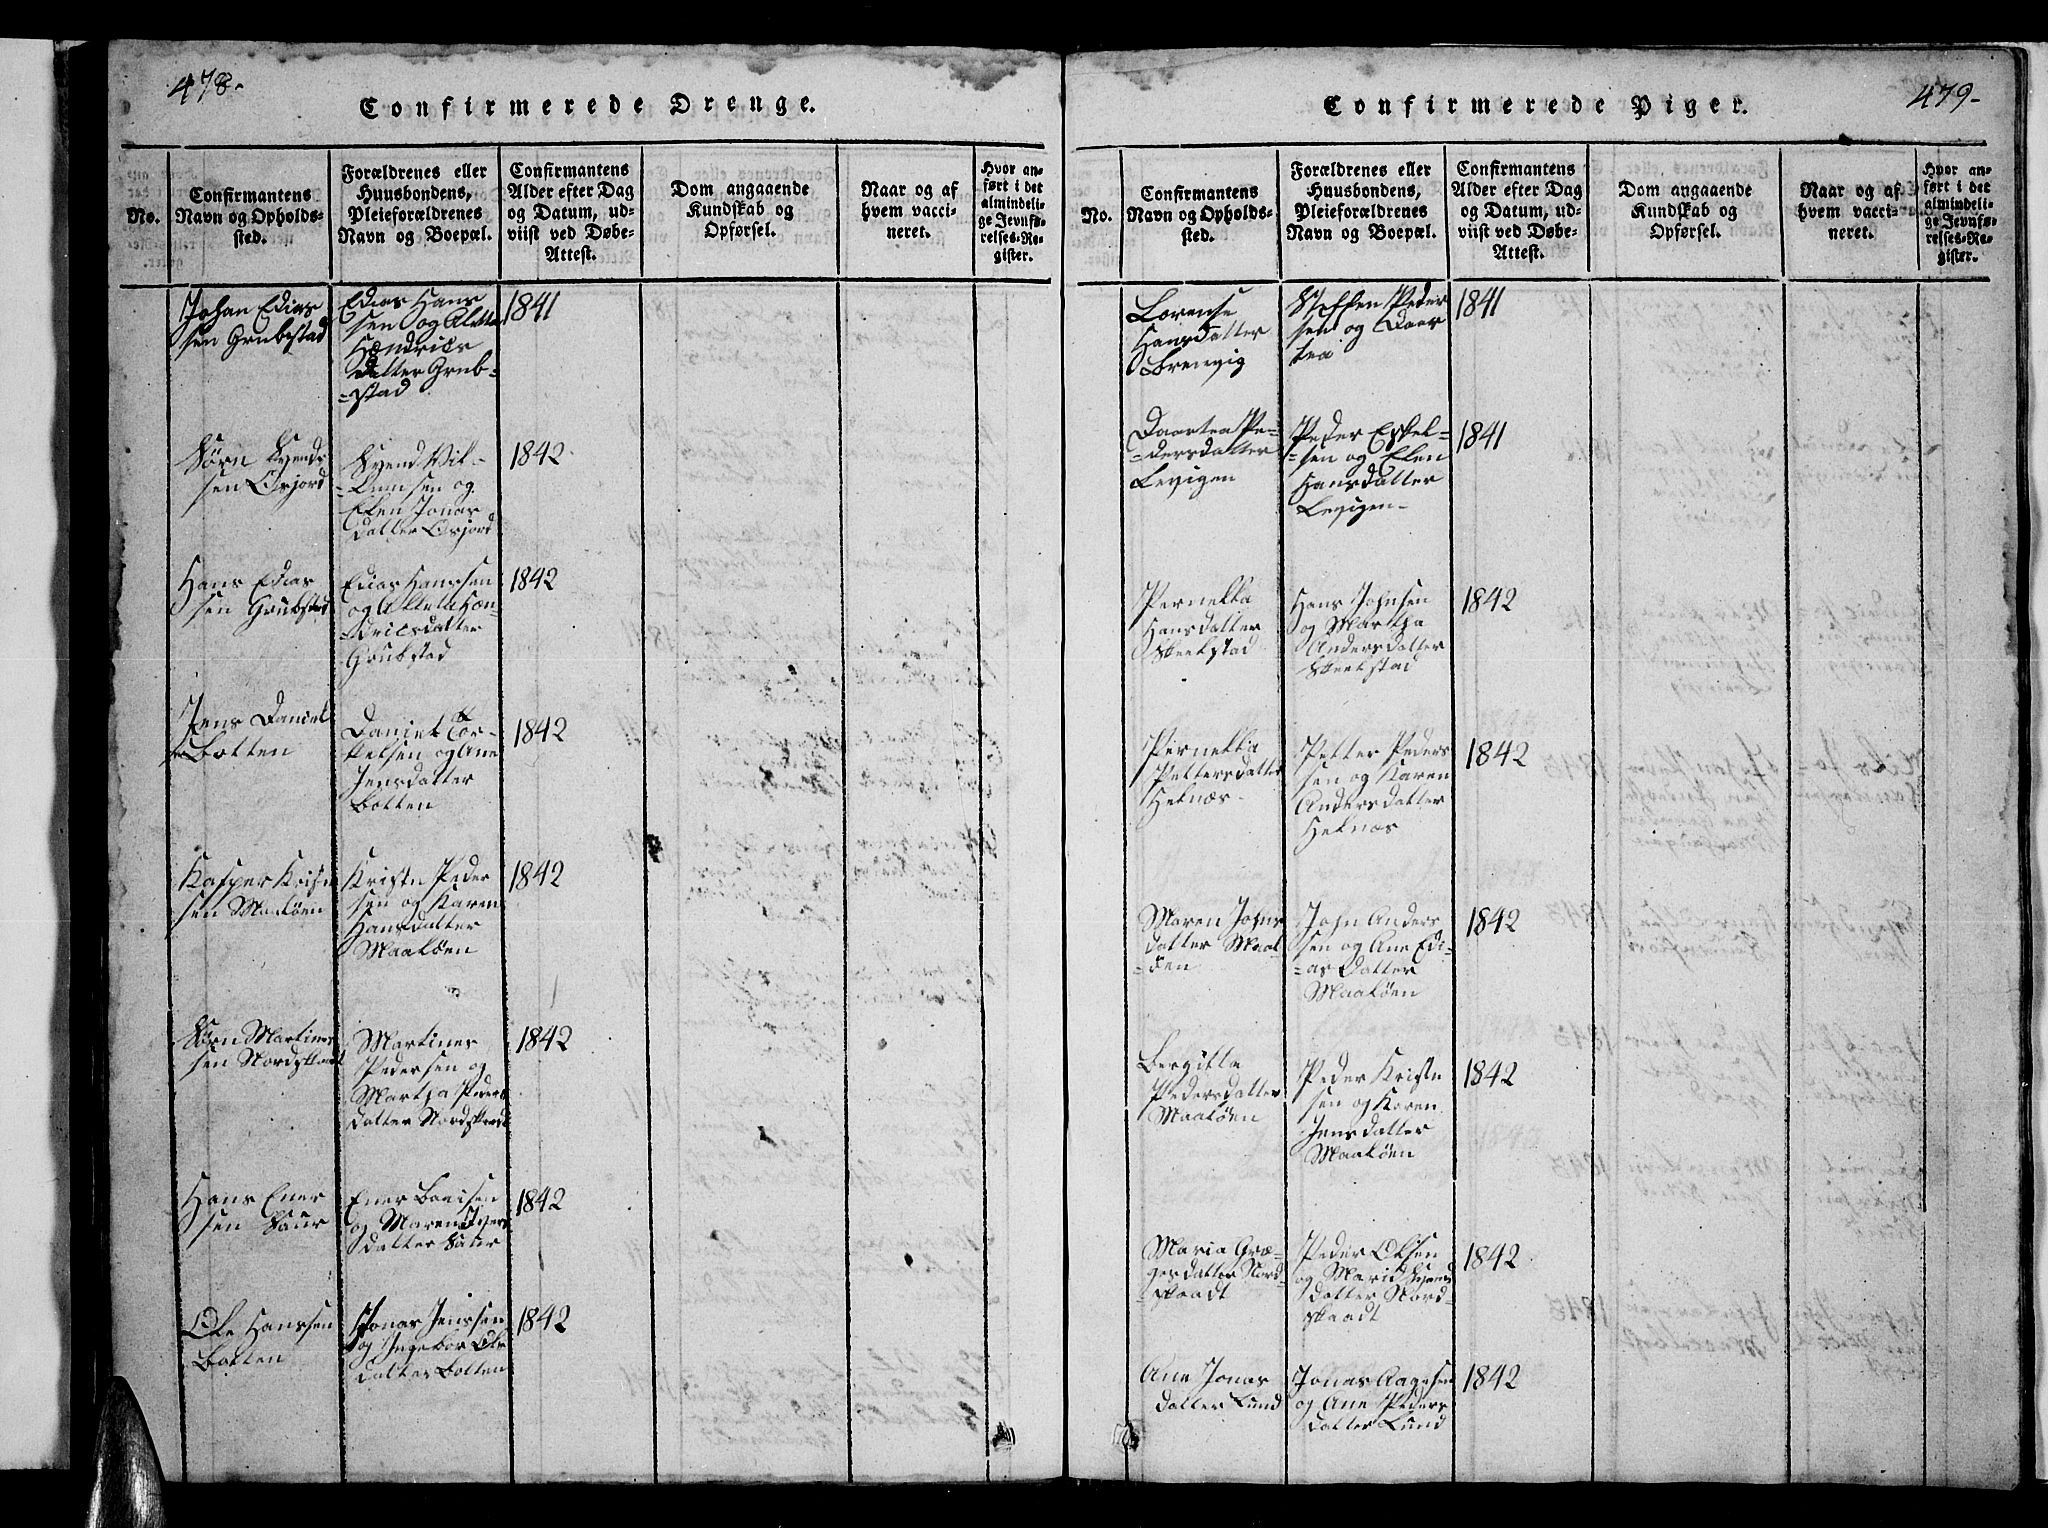 478.
Confirmerede Drenge.
No.
Confirmantens
Navn og Opholds-
sted.
Forældrenes eller
Huusbondens,
Pleieforældrenes
Navn og Boepæl.
Confirmantens
Alder efter Dag
og Datum, ud-
viist ved Døbe-
Attest.
Dom angaaende
Kundskab og
Opførsel.
Naar og af
hvem vacci-
neret.
Hvor an-
ført i det
almindeli-
ge Jevnfø-
relses-Re-
gister.
Johan Edias
sen Grubstad
Edias Hans
sen og Aletta
Hendrics
datter Grub-
-stad
1841
Sörn Svends
sen Osjord
Svend Vil-
-lumsen og
Elen Jonas
datter Osjord
1842
Hans Edias
sen Grubstad
Edias Hanssen
og Alleta Hen-
-dricsdatter
Grubstad
1842
Jens Daniel
Botten
Daniel Tor-
-kelsen og Ane
Jensdatter
Botten
1842
Kasper Kristn
sen Maaløen
Kristn Peder
sen og Karen
Hansdatter
Maaløen
1842
Sörn Martines
sen Nordskaat
Martines
Pedersen og
Martha Peders
datter Nordskaat
1842
Hans Ener
sen Saur
Ener Boeisen
og Maren Ivers
datter Saur
1842
Ole Hanssen
Botten
Jonas Jenssen
og Ingebor Ols
datter Botten
1842
479-
Confirmerede Piger.
No.
Confirmantens
Navn og Opholds-
sted.
Forældrenes eller
Huusbondens,
Pleieforældrenes
Navn og Boepæl.
Confirmantens
Alder efter Dag
og Datum, ud-
viist ved Døbe-
Attest.
Dom angaaende
Kundskab og
Opførsel.
Naar og af
hvem vacci-
neret.
Hvor an-
ført i det
almindeli-
ge Jevnfø-
relses-Re-
gister.
Lorense
Hansdatter
Brenvig
Steffen Peder
sen og Daar
tea
1841
Daartea Pe-
-dersdatter
Levigen
Peder Eskel-
-sen og Elen
Hansdatter
Levigen-
1841
Pernella
Hansdatter
Steelstad
Hans Johnsen
og Martha
Andersdatter
Steelstad
1842
Pernella
Pettersdatter
Helnæs-
Petter Peders
sen og Karen
Andersdatter
Helnæs
1842
Maren Johns
datter Maal-
-øen
John Anders
sen og Ane Edi-
-as Datter
Maaløen
1842
Bergitta
Pedersdatter
Maaløen
Peder Kristn
sen og Karen
Jensdatter
Maaløen
1842
Maria Græ-
gersdatter Nord-
-skaadt
Peder Olsen
og Marid Svends
datter Nord-
skaadt
1842
Ane Jonas
datter Lund
Jonas Aagesen
og Ane Peders
datter Lund
1842